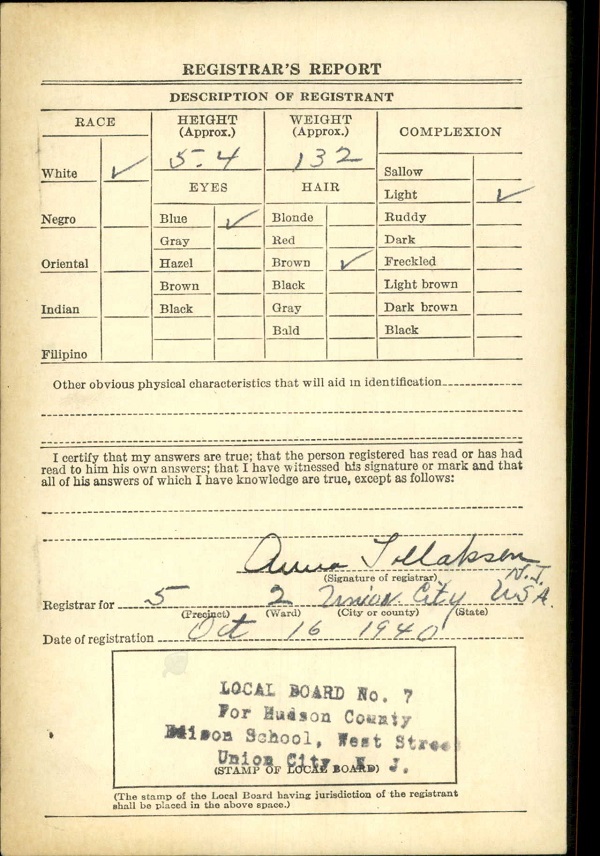 REGISTRAR'S REPORT
DESCRIPTION OF REGISTRANT
RACE
HEIGHT
(Approx.)
WEIGHT
(Approx.)
COMPLEXION
White ✓
5-4
132
Sallow
EYES
HAIR
Light ✓
Negro
Blue ✓
Blonde
Ruddy
Gray
Red
Dark
Oriental
Hazel
Brown ✓
Freckled
Brown
Black
Light brown
Indian
Black
Gray
Dark brown
Bald
Black
Filipino
Other obvious physical characteristics that will aid in identification
I certify that my answers are true; that the person registered has read or has had
read to him his own answers; that I have witnessed his signature or mark and that
all of his answers of which I have knowledge are true, except as follows:
Anna Tollaksen
(Signature of registrar)
N.J.
Registrar for 5 2 Union City USA.
(Precinct) (Ward) (City or county) (State)
Date of registration Oct 16 1940
LOCAL BOARD No. 7
For Hudson County
Edison School, West Stree
Union City, N. J.
(STAMP OF LOCAL BOARD)
(The stamp of the Local Board having jurisdiction of the registrant
shall be placed in the above space.)